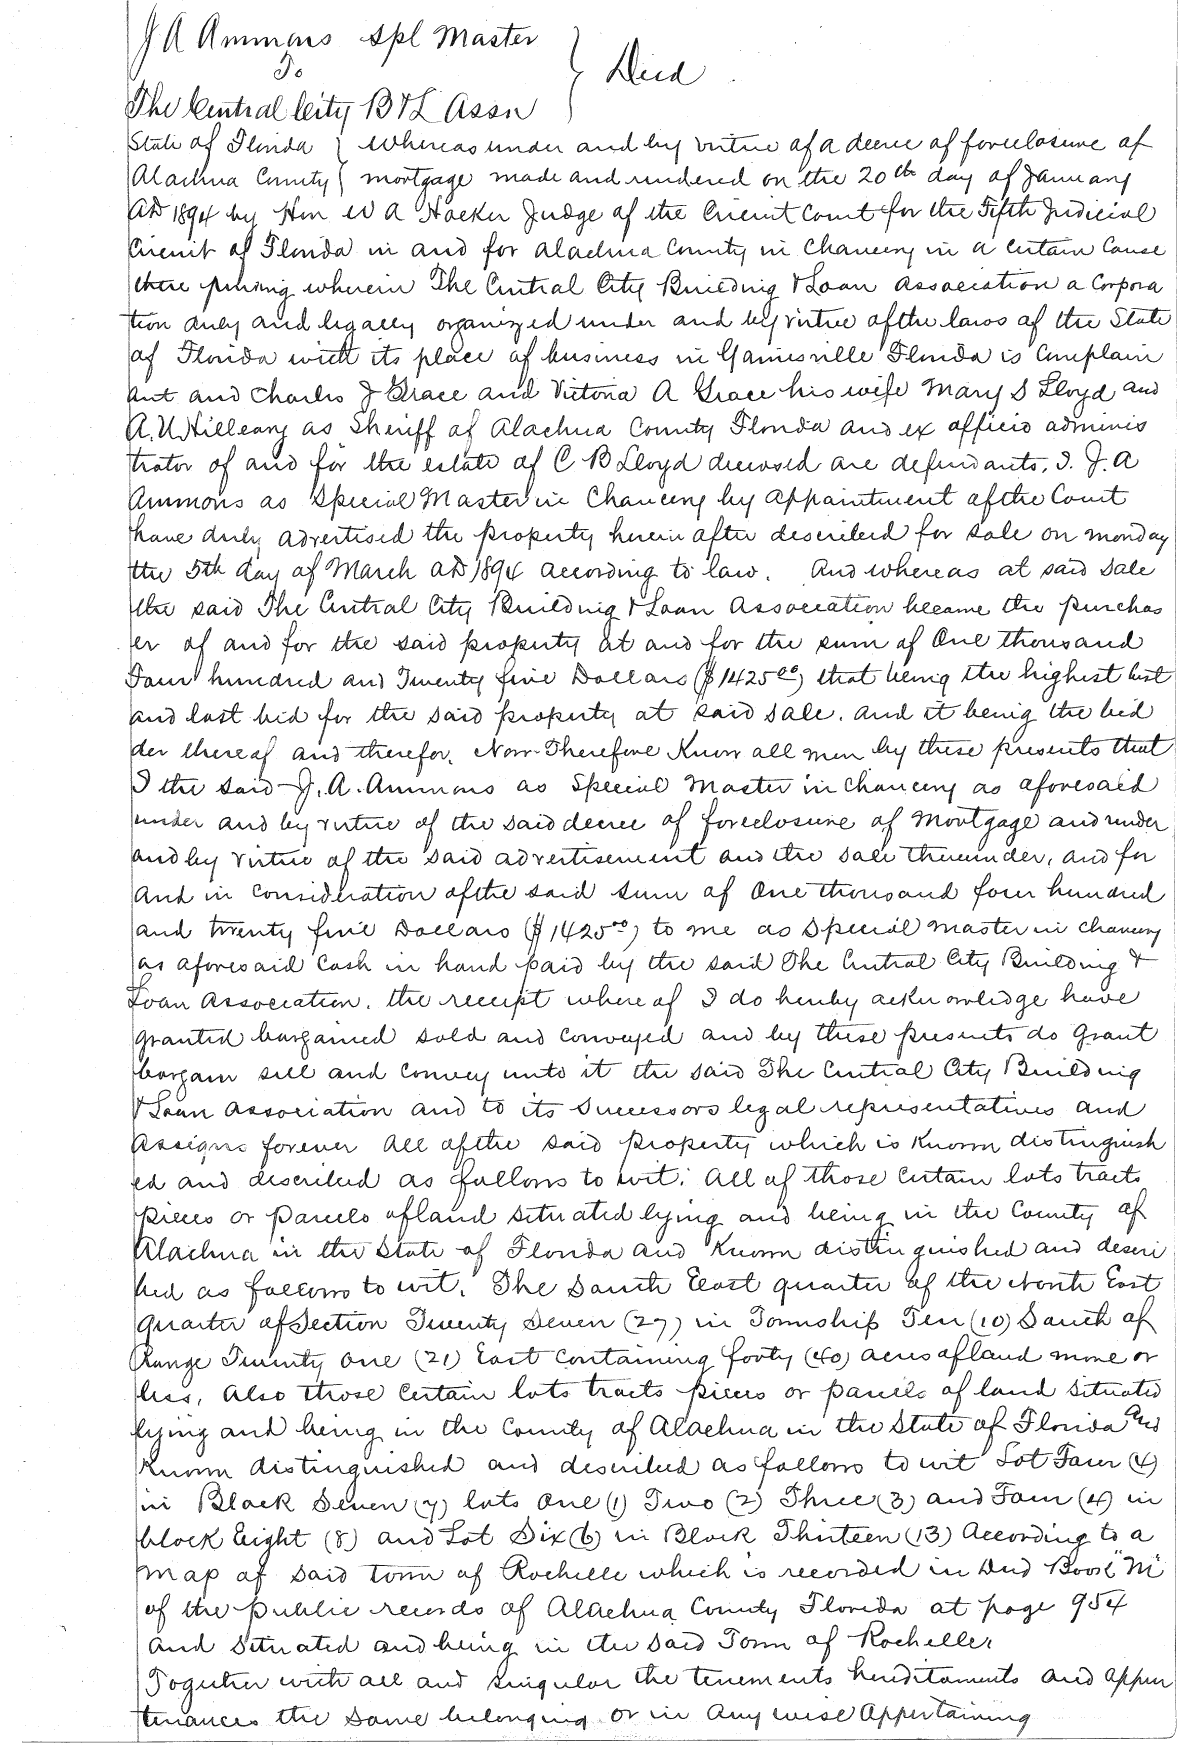 J A Ammons Spl Master
To
Deed
The Central City B & L Assn
State of Florida } Whereas under and by virtue of a decree of foreclosure of
Alachua County { mortgage made and rendered on the 20th day of January
AD 1894 by Hon W A Hocker Judge of the Circuit Court for the Fifth Judicial
Circuit of Florida in and for Alachua County in Chancery in a certain Cause
there pending wherein The Central City Building & Loan Association a Corpora
tion duly and legally organized under and by virtue of the laws of the State
of Florida with its place of business in Gainesville Florida is Complain
ant and Charles J Grace and Victoria A Grace his wife Mary S Lloyd and
A. as Sheriff of Alachua County Florida and ex officio adminis
trator of and for the estate of C B Lloyd deceased are defendants, I. J. A
Ammons as Special Master in Chancery by appointment of the Court
have duly advertised the property herein after described for sale on monday
the 5th day of March AD 1894 according to law. And whereas at said Sale
the said The Central City Building & Loan Association became the purchas
er of and for the said property at and for the sum of One thousand
Four hundred and Twenty five Dollars ($1425 00) that being the highest best
and last bid for the said property at said sale. and it being the bid
der thereof and therefor. Now Therefore Know all men by these presents that
I the said J. A. Ammons as Special Master in Chancery as aforesaid
under and by virtue of the said decree of foreclosure of Mortgage and under
and by virtue of the said advertisement and the sale thereunder, and for
and in consideration of the said sum of One thousand four hundred
and twenty five Dollars ($1425 00) to me as Special master in chancery
as aforesaid Cash in hand paid by the said The Central City Building &
Loan Association. the receipt where of I do hereby acknowledge have
granted bargained sold and conveyed and by these presents do grant
bargain sell and convey unto it the said The Central City Building
& Loan Association and to its Successors legal representatives and
Assigns forever All of the said property which is known distinguish
ed and described as follows to wit: All of those certain lots tracts
pieces or parcels of land situated lying and being in the County of
Alachua in the State of Florida and known distinguished and descri
bed as follows to wit. The South East quarter of the North East
Quarter of Section Twenty Seven (27) in Township Ten (10) South of
Range Twenty one (21) East containing forty (40) acres of land more or
less, Also those Certain lots tracts pieces or parcels of land situated
lying and being in the County of Alachua in the State of Florida and
Known distinguished and described as follows to wit Lot Four (4)
in Block Seven (7) lots One (1) Two (2) Three (3) and Four (4) in
block Eight (8) and Lot Six (6) in Block Thirteen (13) According to a
map of said town of Rochelle which is recorded in Deed Book "M"
of the public records of Alachua County Florida at page 954
and situated and being in the said Town of Rochelle.
Together with all and singular the tenements hereditaments and appur
tenances the same belonging or in any wise Appertaining